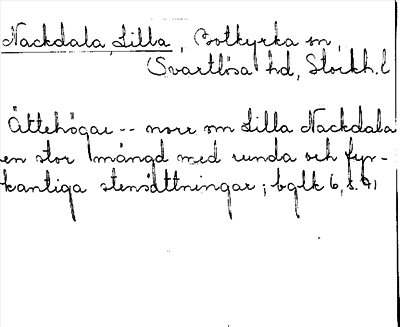 Nackdala, Lilla, Botkyrka sn,
(Svartlösa hd, Stockh. l
Ättehögar -- norr om Lilla Nackdala
en stor mängd med runda och fyr-
kantiga stensättningar; bglk 6, s. 71